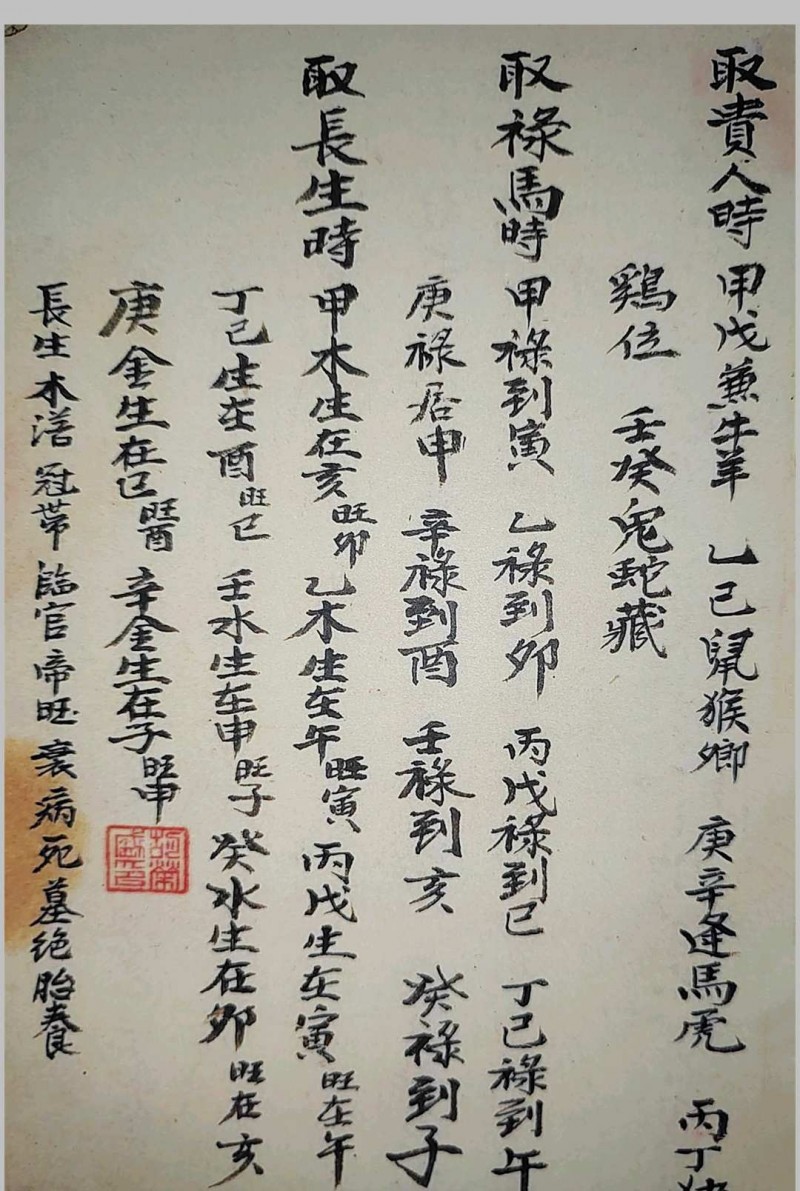 取貴人時 甲戊兼牛羊 乙己鼠猴鄉 庚辛逢馬虎 丙丁
鷄位 壬癸兔蛇藏
取祿馬時 甲祿到寅 乙祿到卯 丙戊祿到巳 丁己祿到午
庚祿居申 辛祿到酉 壬祿到亥 癸祿到子
取長生時 甲木生在亥旺卯 乙木生在午旺寅 丙戊生在寅旺在午
丁己生在酉旺巳 壬水生在申旺子 癸水生在卯旺在亥
庚金生在巳旺酉 辛金生在子旺申
長生木浴冠帶臨官帝旺衰病死墓绝胎養